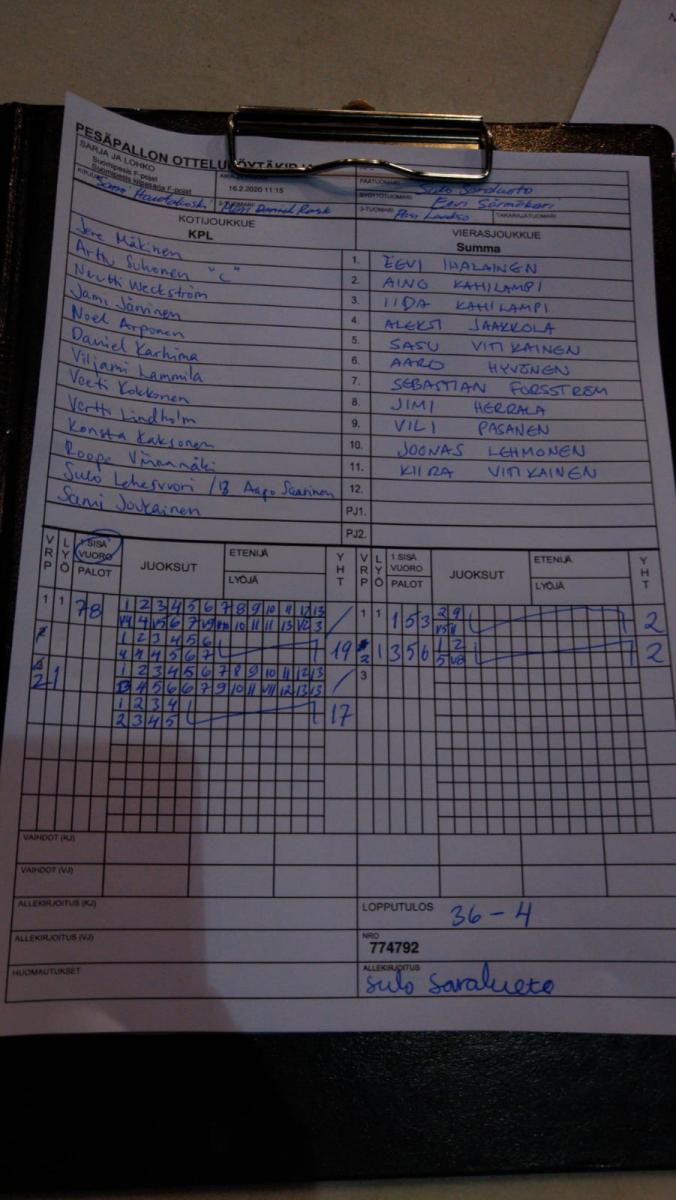 PESÄPALLON OTTELUPÖYTÄKIRJA
SARJA JA LOHKO
Suomipesis F-pojat
16.2.2020 11:15
PÄÄTUOMARI
Sulo Saralueto
SYÖTTÖTUOMARI
Eevi
KIRJURI
2-TUOMARI
Daniel
3-TUOMARI
TAKARAJATUOMARI
KOTIJOUKKUE
KPL
VIERASJOUKKUE
Summa
Jere Mäkinen
1. EEVI IHALAINEN
Arttu Suhonen "C"
2. AINO KAHILAMPI
Nuutti Weckström
3. IIDA KAHILAMPI
Jami Järvinen
4. ALEKSI JAAKKOLA
Noel Arponen
5. SASU VITIKAINEN
Daniel Karhima
6. AARO HYVÖNEN
Viljami Lammila
7. SEBASTIAN FORSSTRÖM
Veeti Kokkonen
8. JIMI HERRALA
Vertti Lindholm
9. VILI PASANEN
Konsta Kaksonen
10. JOONAS LEHMONEN
Roope
11. KIIRA VITIKAINEN
Sulo Lehesvuori /13 Aapo Saarinen
12.
Sami Joukainen
PJ1.
PJ2.
VRP LYÖ 1.SISÄ VUORO PALOT JUOKSUT ETENIJÄ LYÖJÄ YHT VRP LYÖ 1.SISÄ VUORO PALOT JUOKSUT ETENIJÄ LYÖJÄ YHT
1 1 78 1 2 3 4 5 6 7 8 9 10 11 12 13
1 1 153 2 9 2
1 2 3 4 5 6
4 4 4 5 6 7 19
1 356 1 2 2
2 1 1 2 3 4 5 6 7 8 9 10 11 12 13
3
1 2 3 4
2 3 4 5 17
VAIHDOT (KJ)
VAIHDOT (VJ)
ALLEKIRJOITUS (KJ)
LOPPUTULOS 36-4
ALLEKIRJOITUS (VJ)
NRO
774792
HUOMAUTUKSET
ALLEKIRJOITUS
Sulo Saralueto